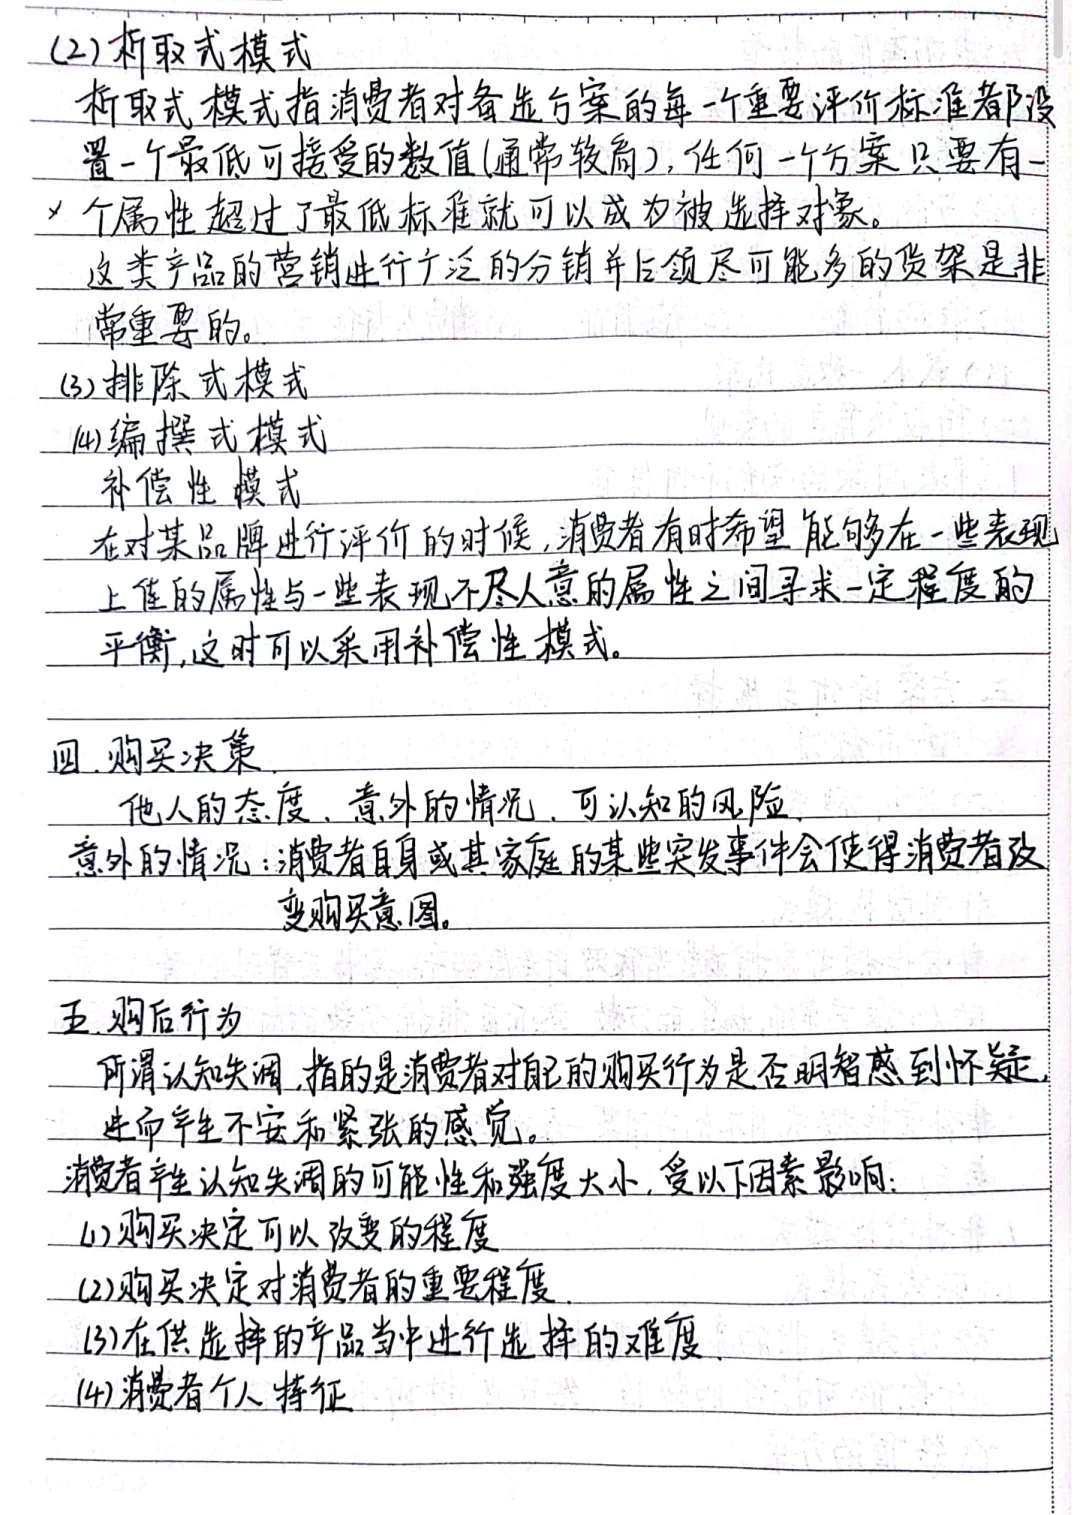 (2)析取式模式
析取式模式指消费者对备选方案的每一个重要评价标准都设
置一个最低可接受的数值(通常较高),任何一个方案只要有一
× 个属性超过了最低标准就可以成为被选择对象。
这类产品的营销进行广泛的分销并占领尽可能多的货架是非
常重要的。
(3)排除式模式
(4)编撰式模式
补偿性模式
在对某品牌进行评价的时候,消费者有时希望能够在一些表现
上佳的属性与一些表现不尽人意的属性之间寻求一定程度的
平衡,这时可以采用补偿性模式。
四.购买决策.
他人的态度、意外的情况、可认知的风险.
意外的情况:消费者自身或其家庭的某些突发事件会使得消费者改
变购买意图。
五.购后行为
所谓认知失调,指的是消费者对自己的购买行为是否明智感到怀疑,
进而产生不安和紧张的感觉。
消费者产生认知失调的可能性和强度大小,受以下因素影响:
(1)购买决定可以改变的程度
(2)购买决定对消费者的重要程度.
(3)在供选择的产品当中进行选择的难度.
(4)消费者个人特征